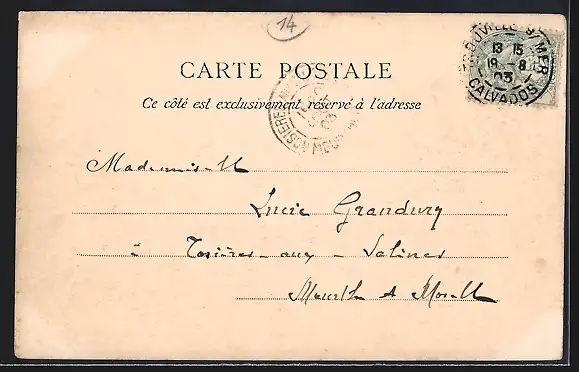 14
TROUVILLE S/ MER
13 15
19 - 8
03
CALVADOS
CARTE POSTALE
Ce côté est exclusivement réservé à l'adresse
Mademoiselle
Lucie Grandury
à Rosières-aux-Salines
Meurthe et Moselle